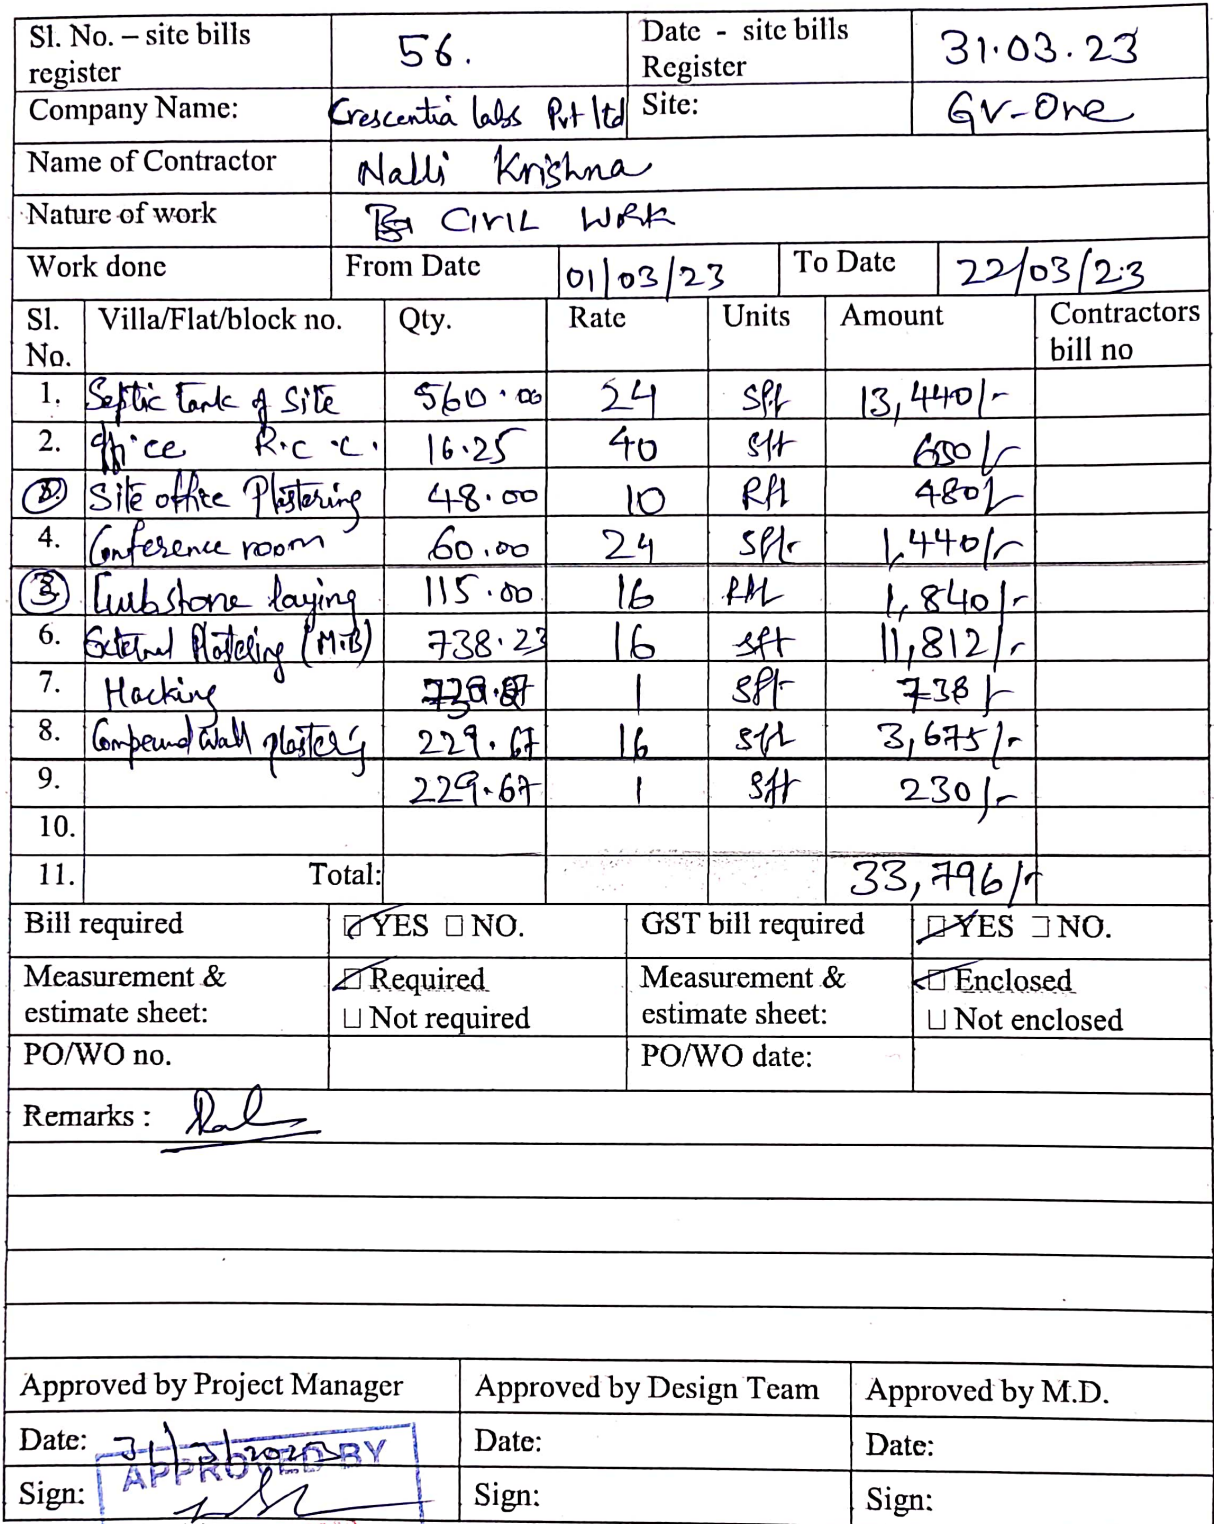 Sl. No. – site bills register 56. Date - site bills Register 31.03.23
Company Name: Crescentia labs Pvt ltd Site: GV-One
Name of Contractor Nalli Krishna
Nature of work CIVIL WORK
Work done From Date 01/03/23 To Date 22/03/23
Sl. No. Villa/Flat/block no. Qty. Rate Units Amount Contractors bill no
1. Septic tank of site 560.00 24 sft 13,440/-
2. office R.C.C. 16.25 40 sft 650/-
Site office Plastering 48.00 10 Rft 480/-
4. Conference room 60.00 24 sft 1,440/-
3. Curbstone laying 115.00 16 Rft 1,840/-
6. External Plastering (M.B) 738.23 16 sft 11,812/-
7. Hacking 1 sft 738/-
8. Compound wall plastering 229.67 16 sft 3,675/-
9. 229.67 1 sft 230/-
10.
11. Total: 33,796/-
Bill required YES NO. GST bill required YES NO.
Measurement & estimate sheet: Required Not required Measurement & estimate sheet: Enclosed Not enclosed
PO/WO no. PO/WO date:
Remarks :
Approved by Project Manager Approved by Design Team Approved by M.D.
Date: 31/3/2023 Date: Date:
APPROVED BY
Sign: Sign: Sign: